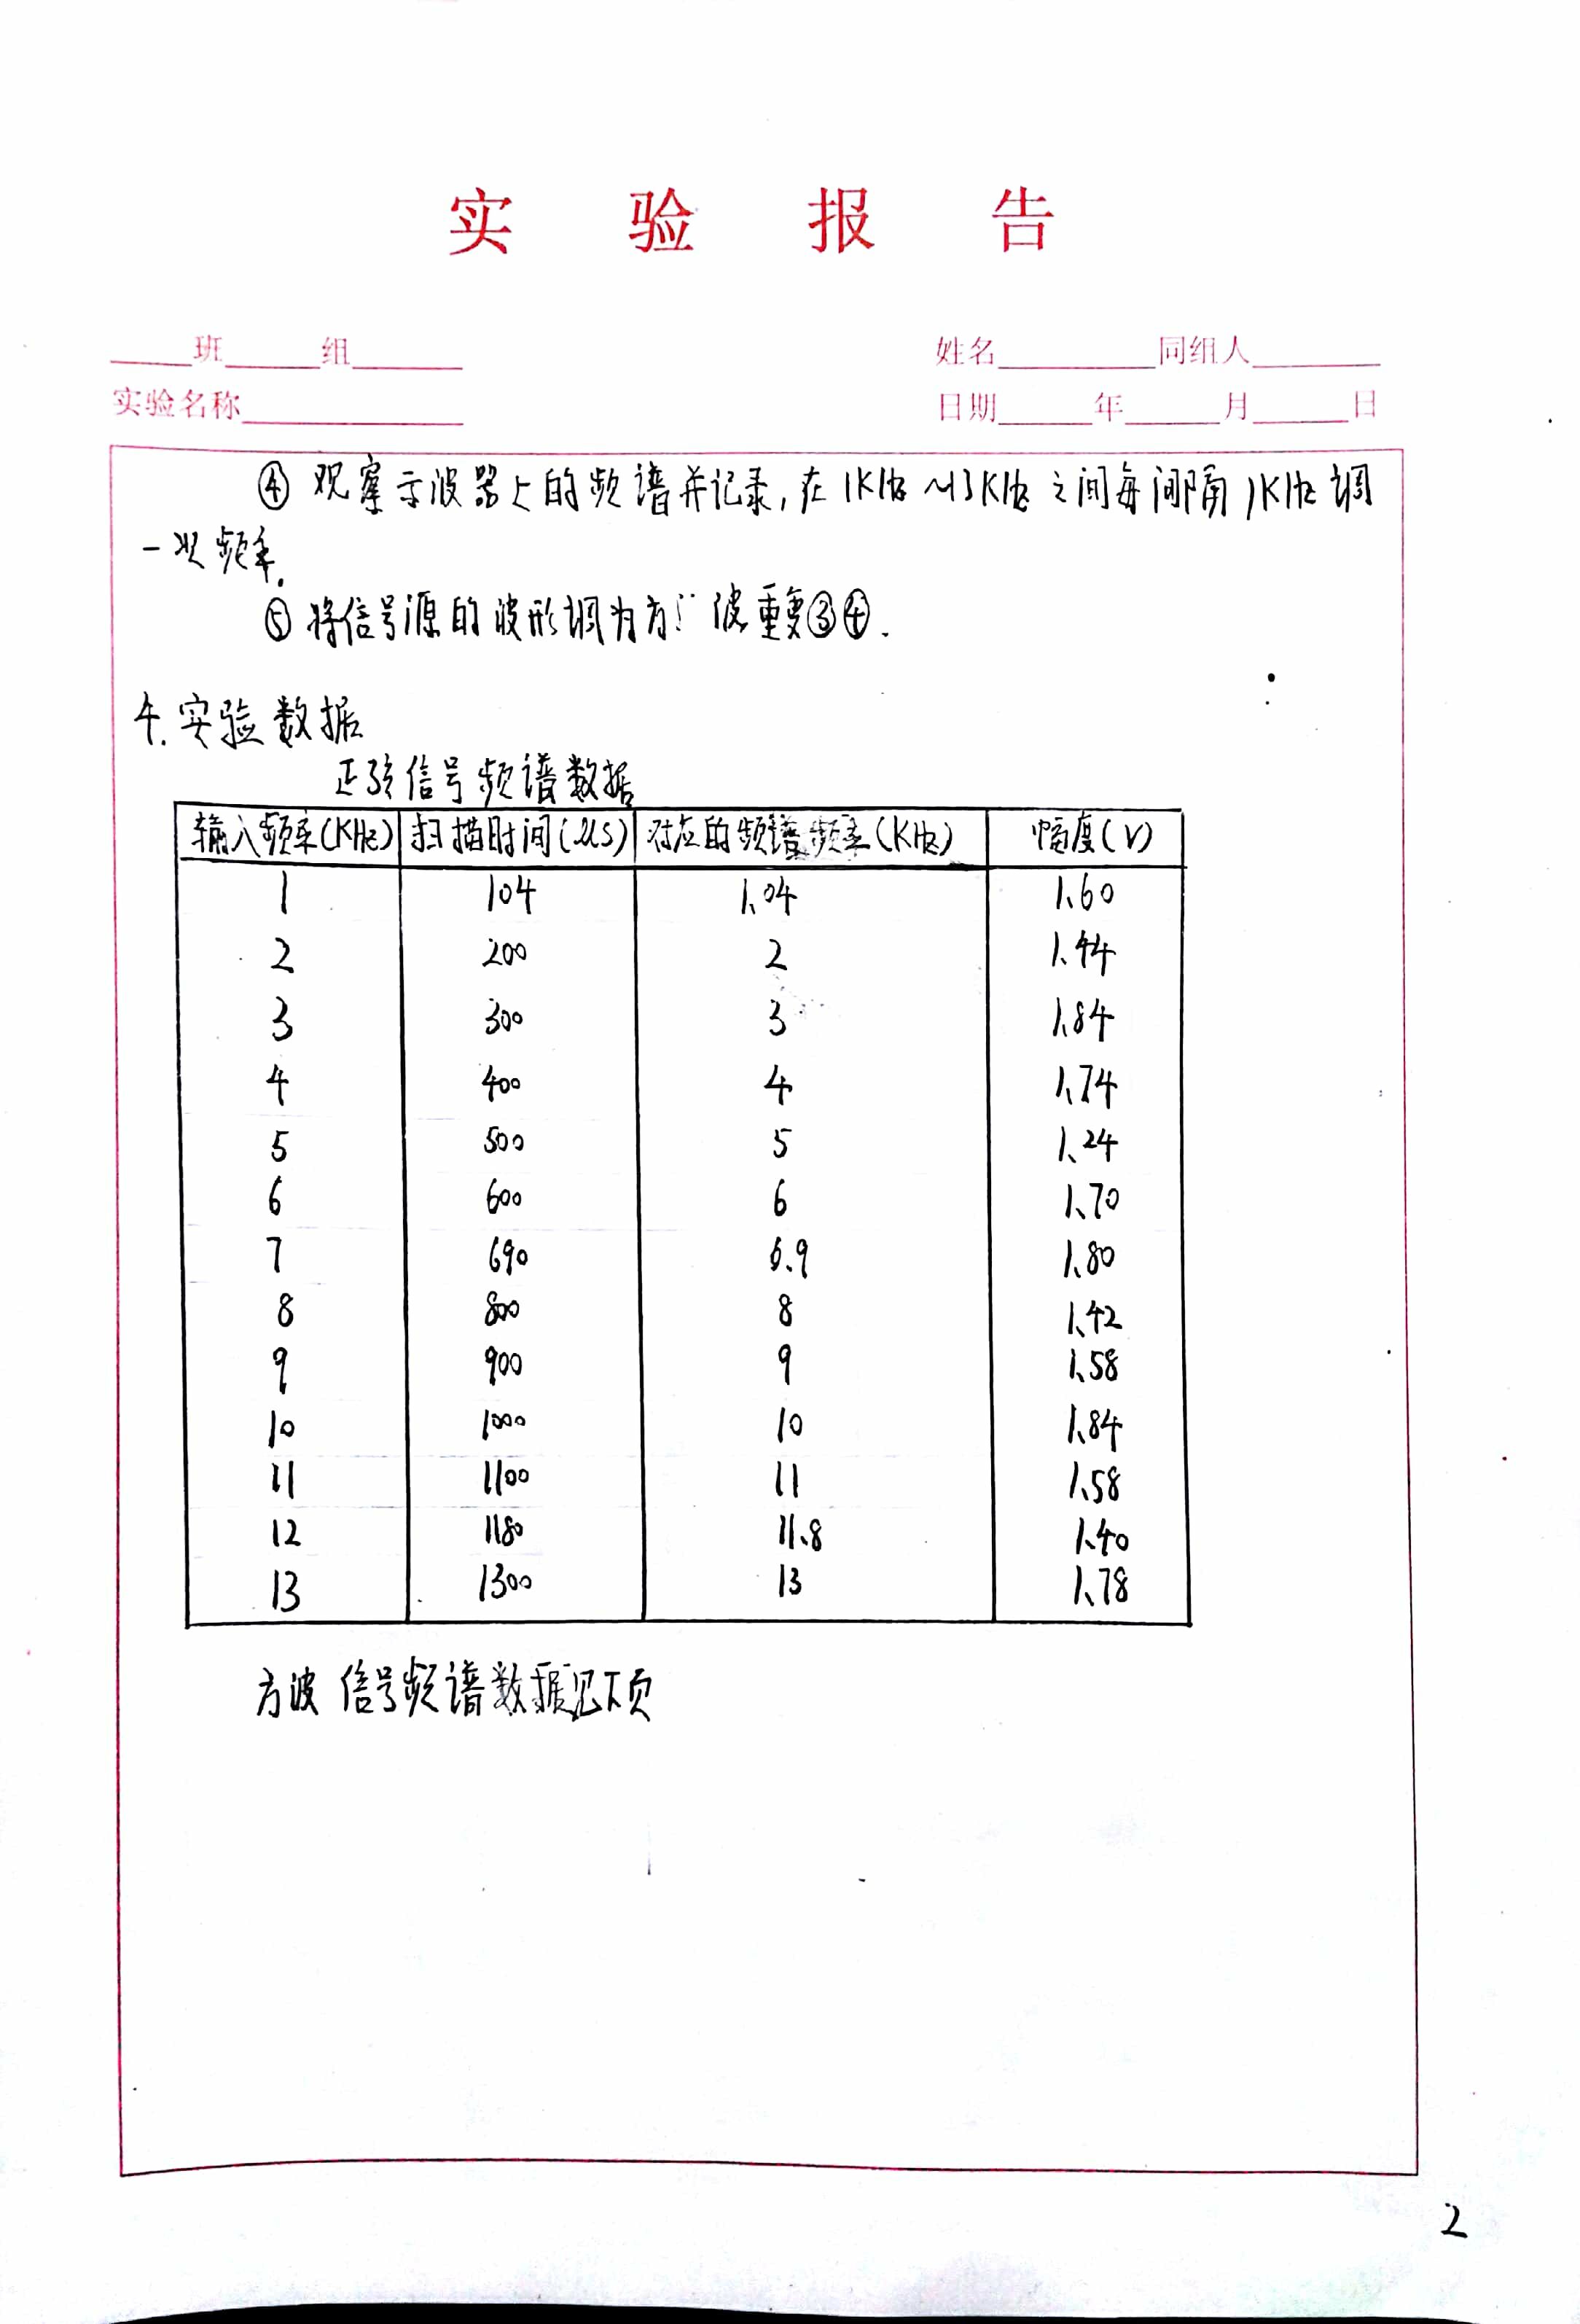 实验报告
班 组 姓名 同组人
实验名称 日期 年 月 日
④ 观察示波器上的频谱并记录,在1KHz~13KHz之间每间隔1KHz调
一次频率.
⑤ 将信号源的波形调为方波重复③④.
4.实验数据
正弦信号频谱数据
输入频率(KHz) 扫描时间(μs) 对应的频谱频率(KHz) 幅度(V)
1 104 1.04 1.60
2 200 2 1.44
3 300 3 1.84
4 400 4 1.74
5 500 5 1.24
6 600 6 1.70
7 690 6.9 1.80
8 800 8 1.42
9 900 9 1.58
10 1000 10 1.84
11 1100 11 1.58
12 1180 11.8 1.40
13 1300 13 1.78
方波信号频谱数据见下页
2